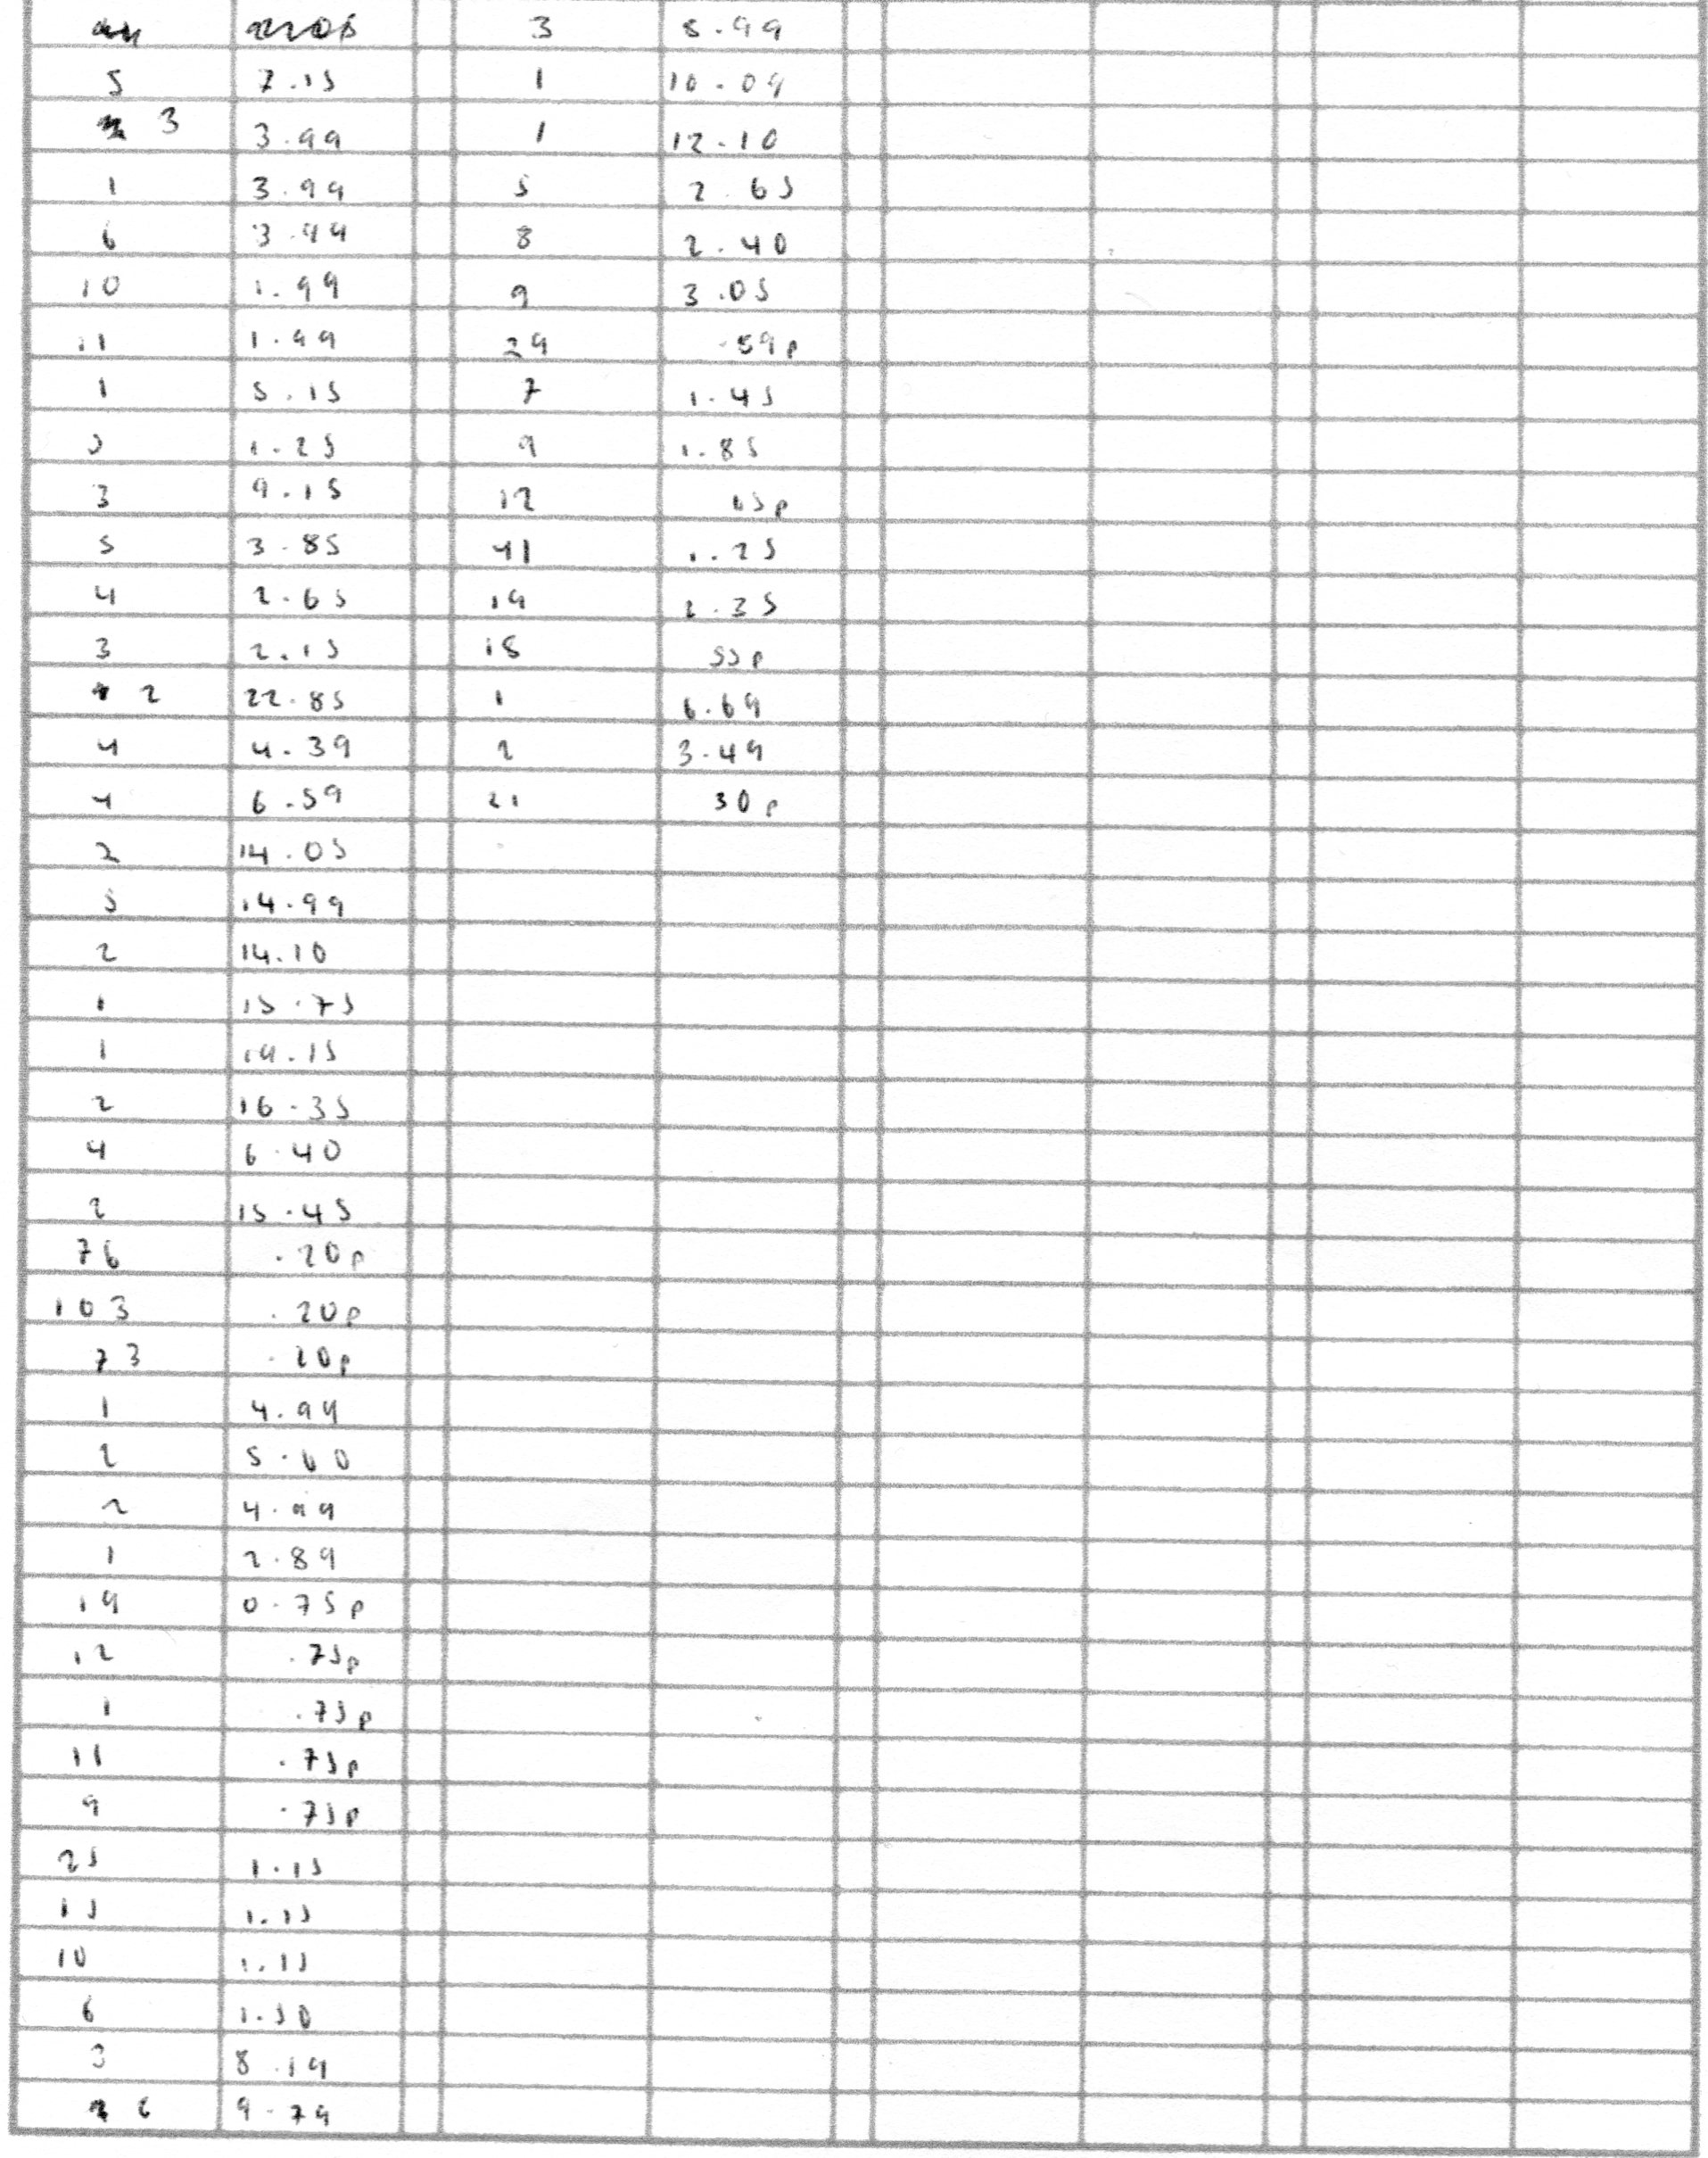 3 8.99
5 7.15 1 10.09
3 3.99 1 12.10
1 3.99 5 2.65
6 3.99 8 2.40
10 1.99 9 3.05
11 1.99 29 .59p
1 5.15 7 1.45
3 1.25 9 1.85
3 9.15 12 65p
5 3.85 41 1.25
4 2.65 19 2.35
3 2.15 15 55p
2 22.85 1 6.69
4 4.39 2 3.49
4 6.59 21 30p
2 14.05
3 14.99
2 14.10
1 15.75
1 14.15
2 16.35
4 6.40
2 15.45
76 .20p
103 .20p
73 .20p
1 4.99
2 5.60
2 4.99
1 2.89
19 0.75p
12 .75p
1 .75p
11 .75p
9 .75p
25 1.15
15 1.15
10 1.15
6 1.50
3 8.19
6 9.79